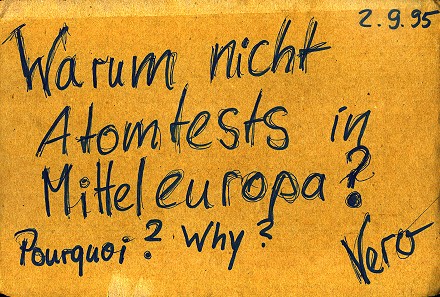 2.9.95
Warum nicht
Atomtests in
Mitteleuropa?
Pourquoi? Why?
Vero